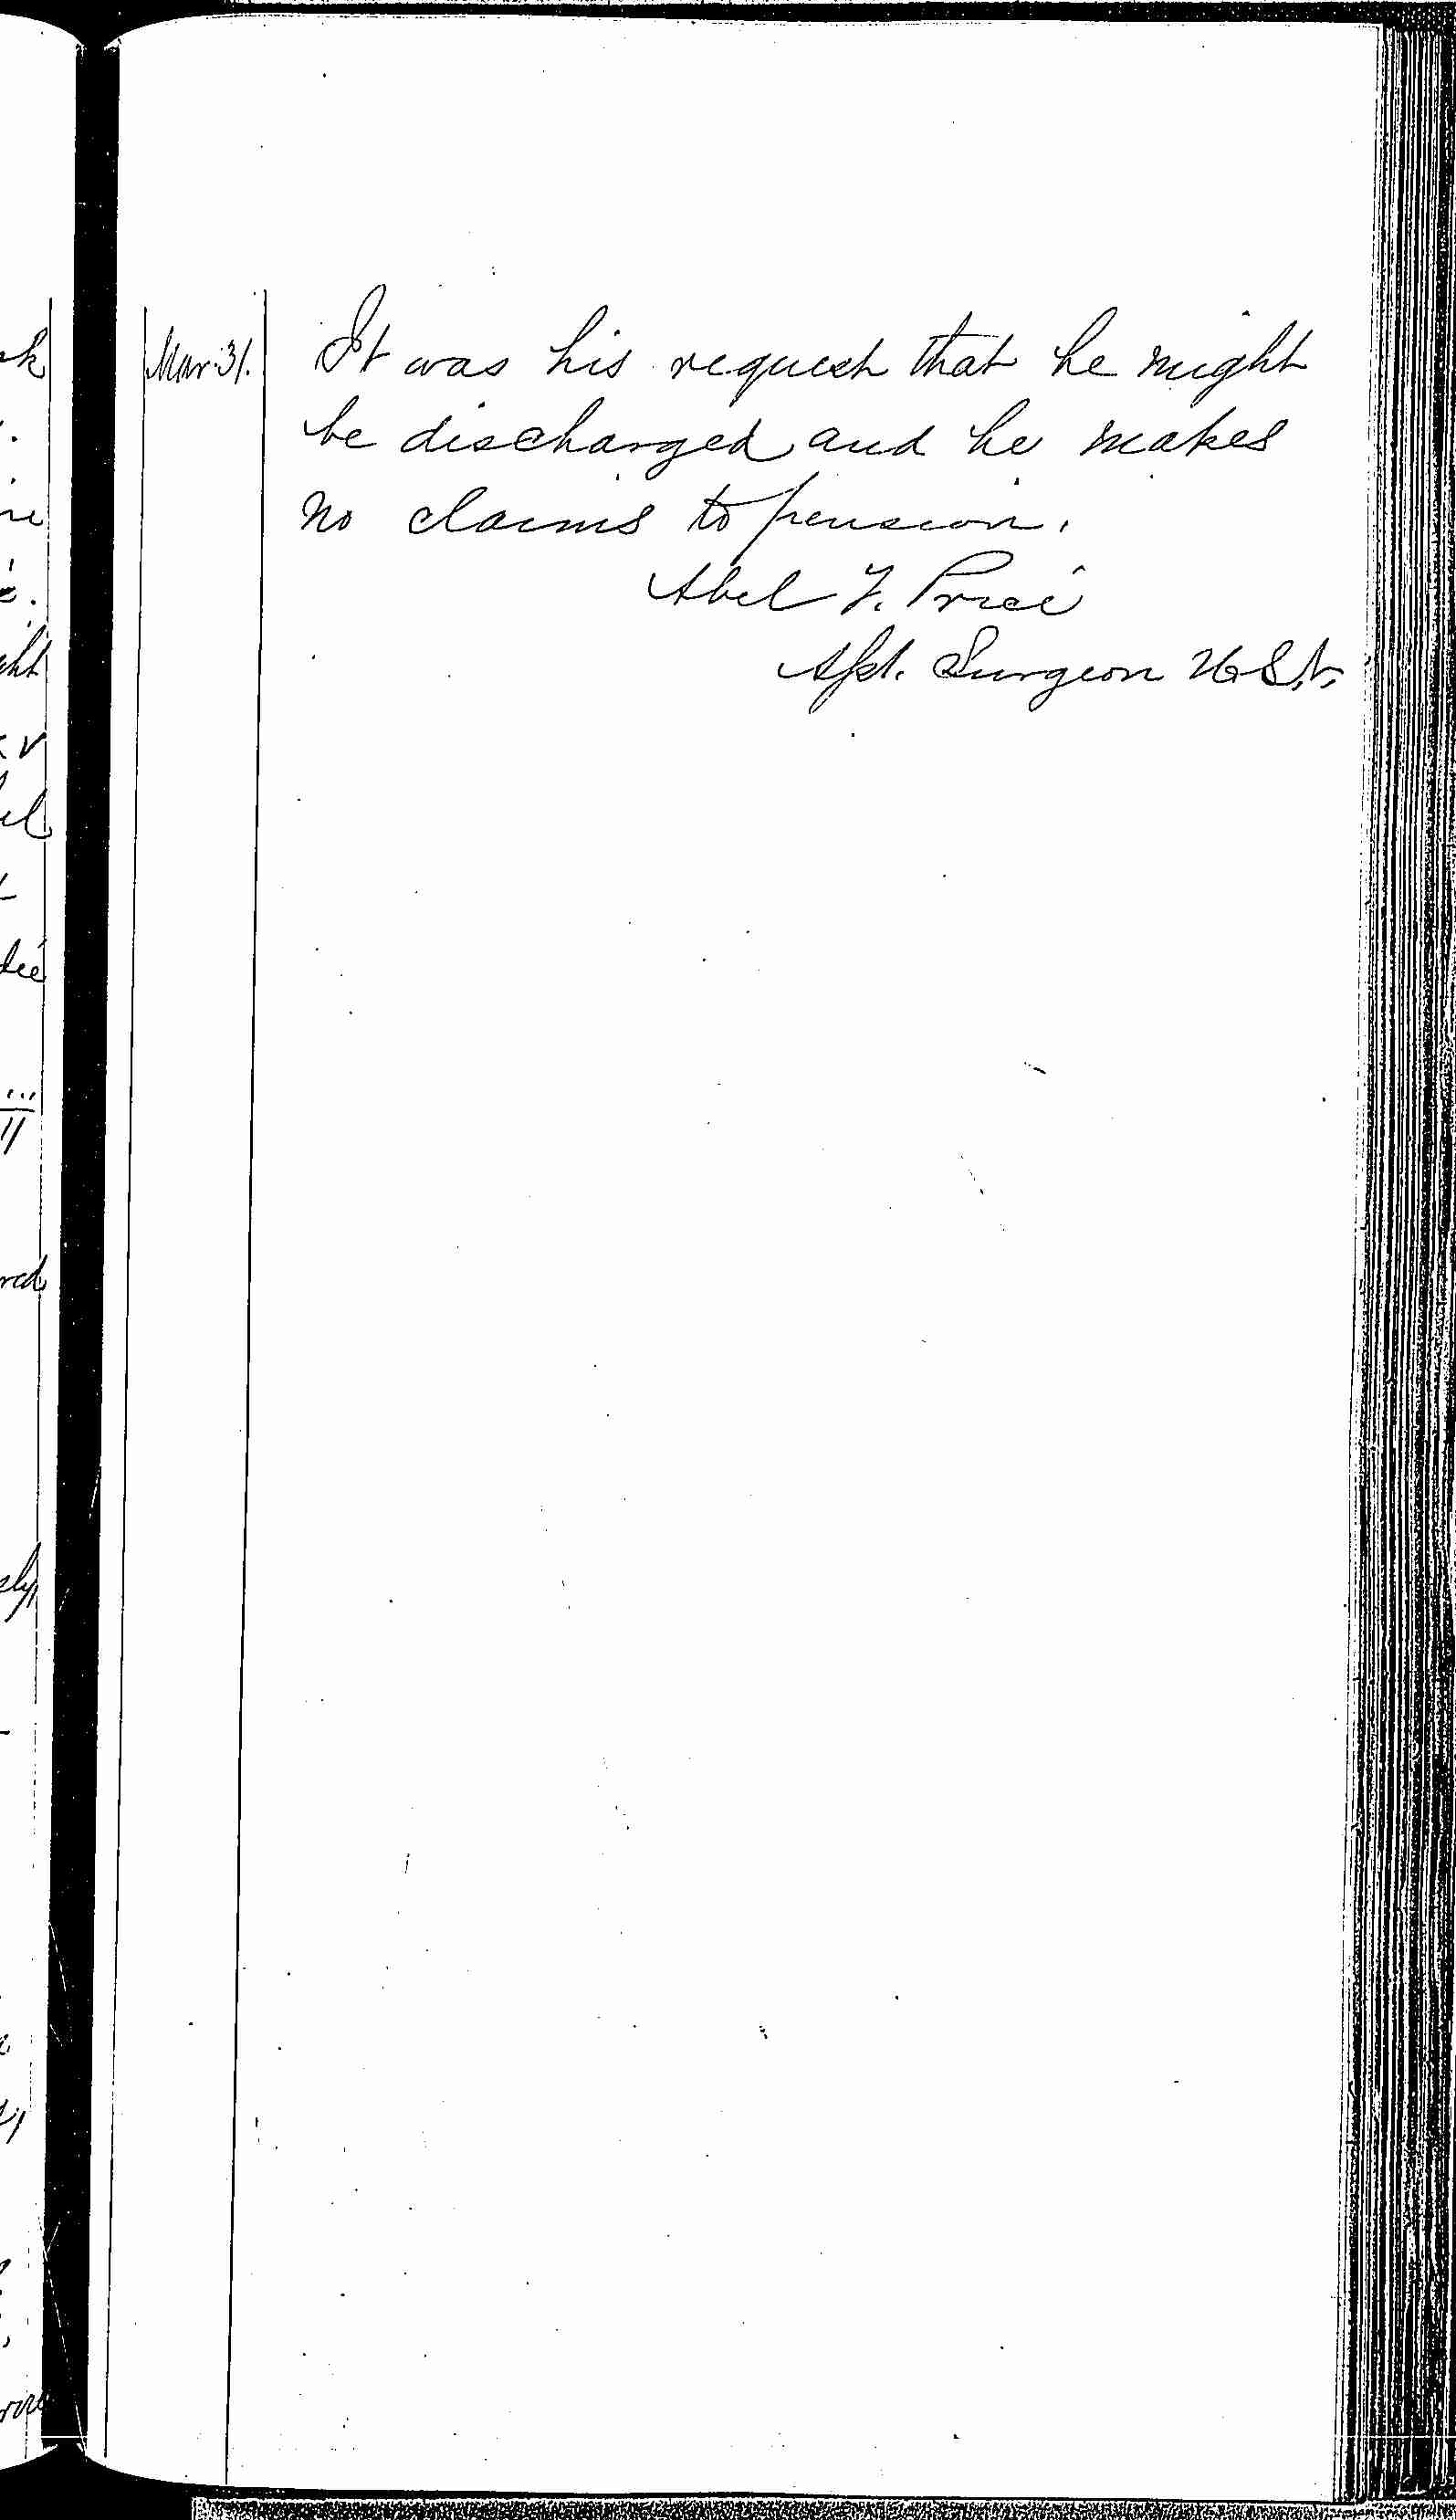 Mar. 31. It was his request that he might
be discharged and he makes
no claims to pension.
Abel F. Price
Asst. Surgeon U.S.N.